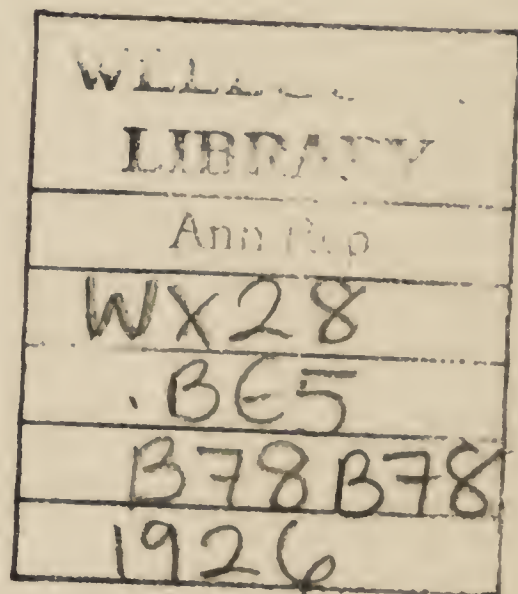 LIBRARY
Ann Rep
WX28
.BE5
B78B78
1926